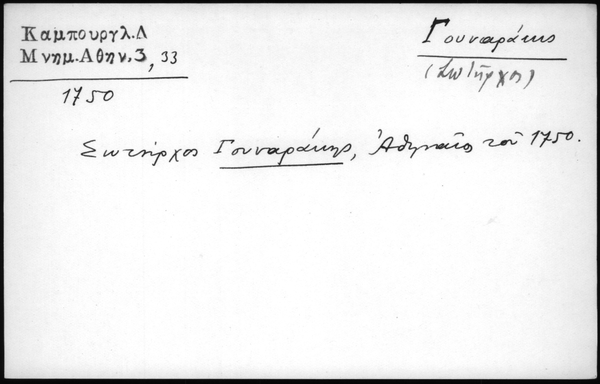 Καμπουργλ.Δ
Μνημ.Αθην.3, 33
1750
Γουναράκης
(Σωτήρχος)
Σωτήρχος Γουναράκης, Ἀθηναῖος τοῦ 1750.